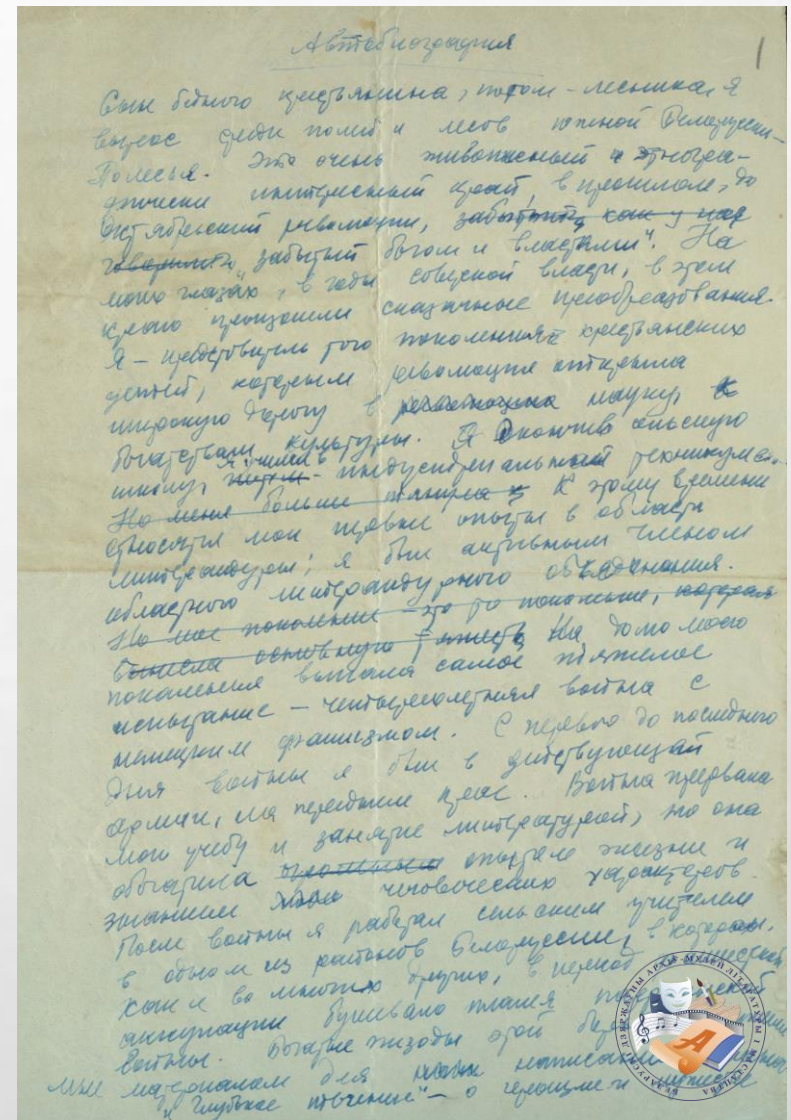 Автобиография
1
Сын бедного крестьянина, потом – лесника, я
вырос среди полей и лесов южной Белоруссии –
Полесья. Это очень живописный и этногра-
фически интересный край, в прошлом, до
Октябрьской революции, забытый, как у нас
говорили, забытый богом и властями". На
моих глазах, в годы советской власти, в этом
краю произошли сказочные преобразования.
Я – представитель того поколения крестьянских
детей, которым революция открыла
широкую дорогу в революция науку, к
богатствам культуры. Я окончив сельскую
школу, я учился в индустриальном техникуме.
Но меня больше тянула К этому времени
относятся мои первые опыты в области
литературы; я был активным членом
областного литературного объединения.
Но мое поколение – это то поколение, которое
вынесла основную тяжесть На долю моего
поколения выпало самое тяжелое
испытание – четырехлетняя война с
немецким фашизмом. С первого до последнего
дня войны я был в действующей
армии, на переднем крае. Война прервала
мою учебу и занятие литературой, но она
обогатила опытом жизни и
знанием человеческих характеров.
После войны я работал сельским учителем
в одном из районов Белоруссии, в котором,
как и во многих других, в период
оккупации бушевало пламя
войны. Богатые эпизоды этой
мне материалом для
"Глубокое течение" – о героизме и
БЕЛАРУСКІ ДЗЯРЖАЎНЫ АРХІЎ-МУЗЕЙ ЛІТАРАТУРЫ І МАСТАЦТВА